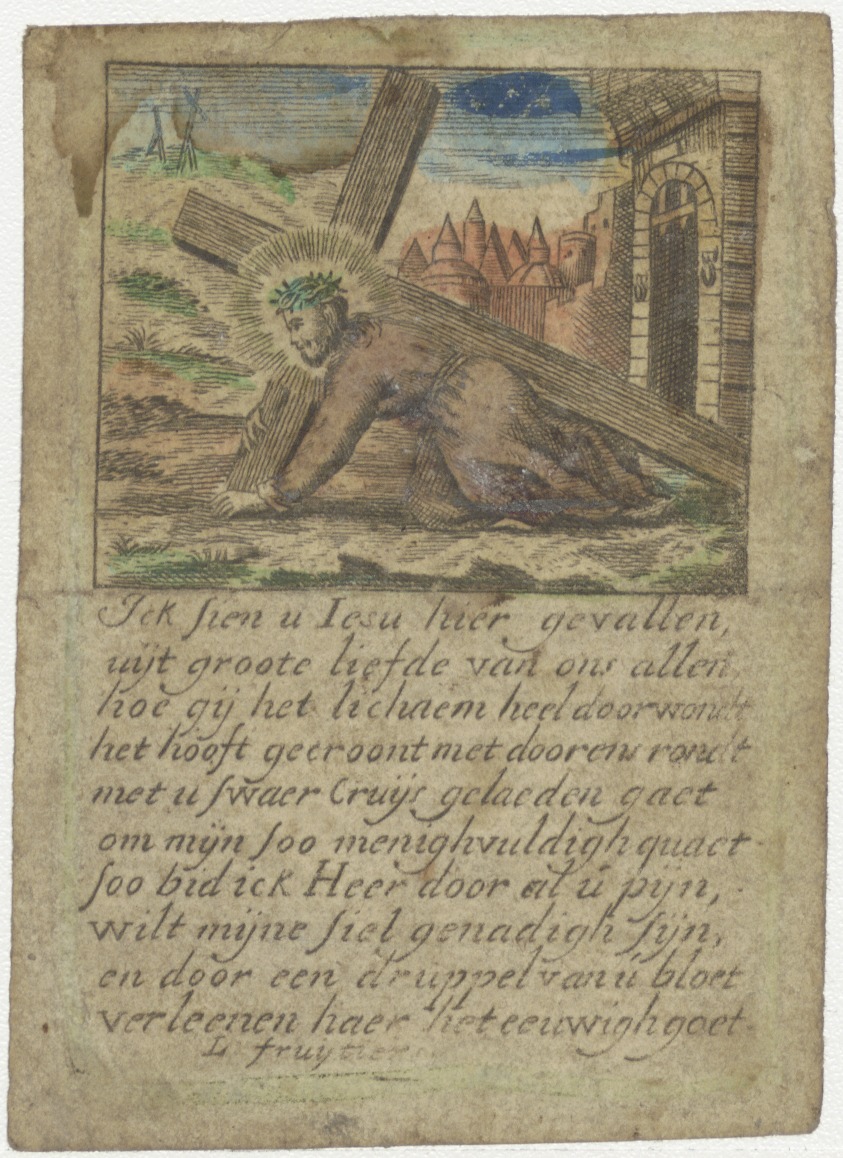 Ick sien u Iesu hier gevallen,
uijt groote liefde van ons allen,
hoe gij het lichaem heel doorwondt
het hooft gecroont met doorens rondt
met u swaer Cruijs gelaeden gaet
om mijn soo menighvuldigh quaet
soo bid ick Heer door al ú pijn,
wilt mijne siel genadigh sijn,
en door een druppel van ú bloet
verleenen haer het eeuwigh goet.
L fruytiers